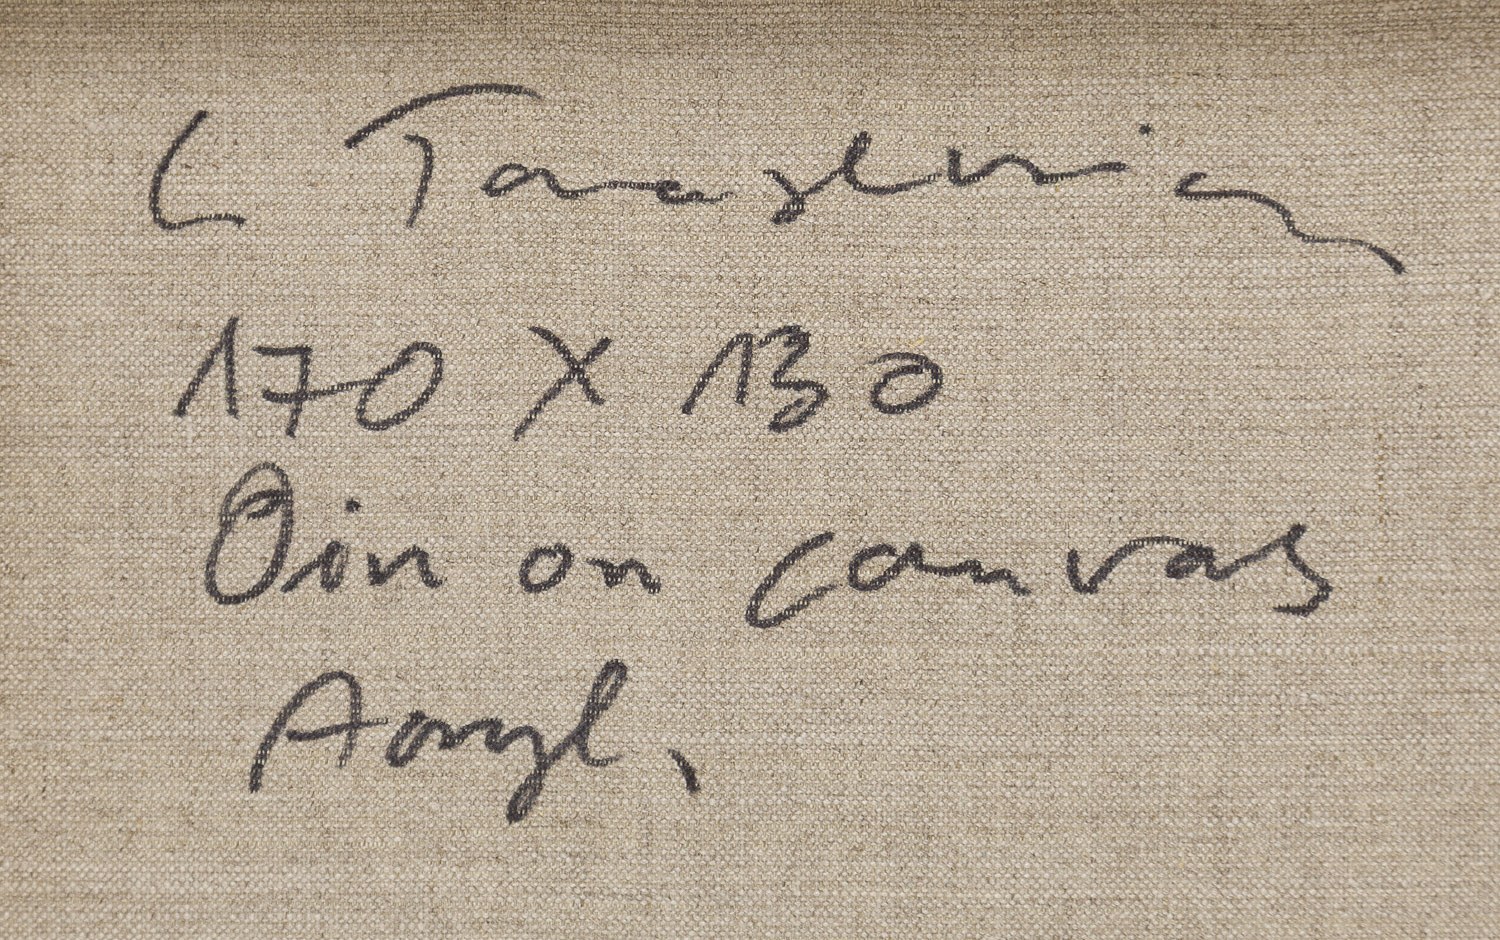 170 X 130
Oin on canvas
Acryl,